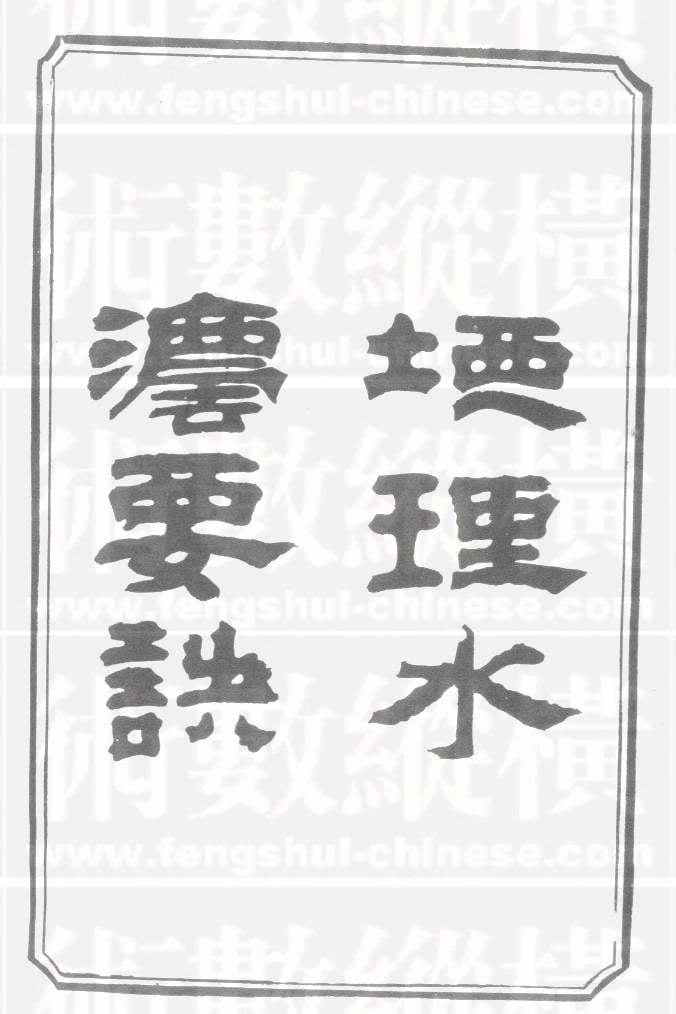 地理水
灋要訣
術數縱橫
www.fengshui-chinese.com
術數縱橫
www.fengshui-chinese.com
術數縱橫
www.fengshui-chinese.com
術數縱橫
www.fengshui-chinese.com
術數縱橫